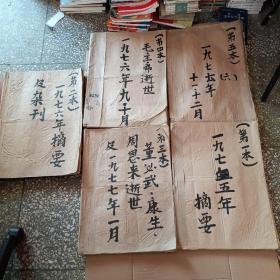 （第二本）
一九七六年摘要
及杂刊
（第四本）
毛主席逝世
一九七六年九十月
（第五本）
一九七六年（上）
十一十二月
（第三本）
董必武·康生·
周恩来逝世
及一九七七年一月
（第一本）
一九七五年
摘要